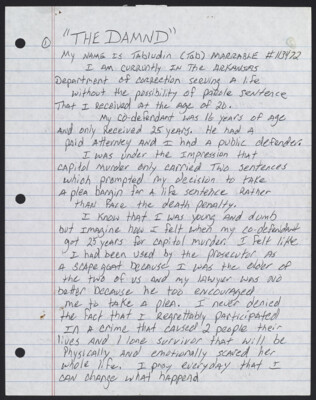 ① "THE DAMND"
My NAME IS Tabludin (Tab) MARZABLE # 113472
I AM CURRENTLY IN The ARKANSAS
Department of correction serving A life
without the possibility of parole sentence
That I received at the age of 20.
My co-defendant was 16 years of age
and only Received 25 years. He had a
paid attorney and I had a public defender.
I was under the impression that
capitol murder only carried Two sentences
which prompted my decision to take
a plea bargin for a life sentence rather
than face the death penalty.
I know that I was young and dumb
but imagine how I felt when my co-defendant
got 25 years for capitol murder. I felt like
I had been used by the prosecutor as
a scapegoat because I was the older of
the two of us and my lawyer was no
better because he too encouraged
me to take a plea. I never denied
the fact that I Regrettably participated
In a crime that caused 2 people their
lives and 1 lone survivor that will be
Physically and emotionally scared her
whole life. I pray everyday that I
can change what happend